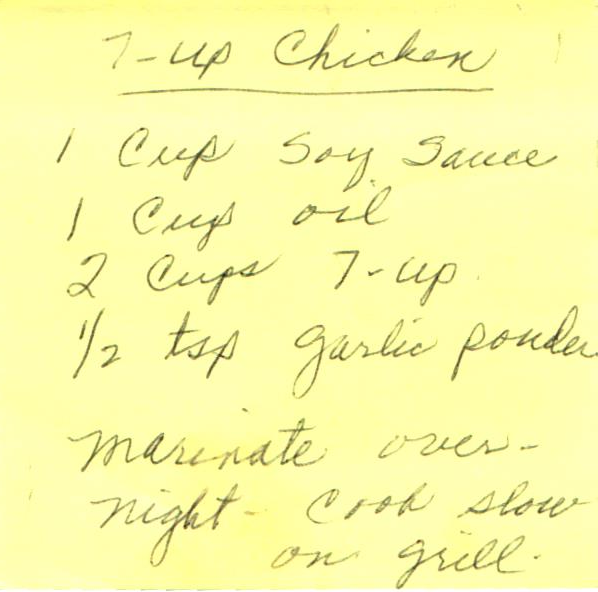 7-up Chicken
1 Cup Soy Sauce
1 Cup oil
2 Cups 7-up
1/2 tsp garlic powder
Marinate over-
night - Cook slow
on grill.